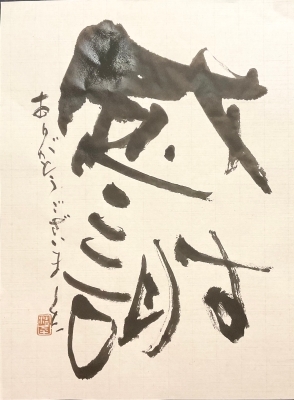 感謝
ありがとうございました